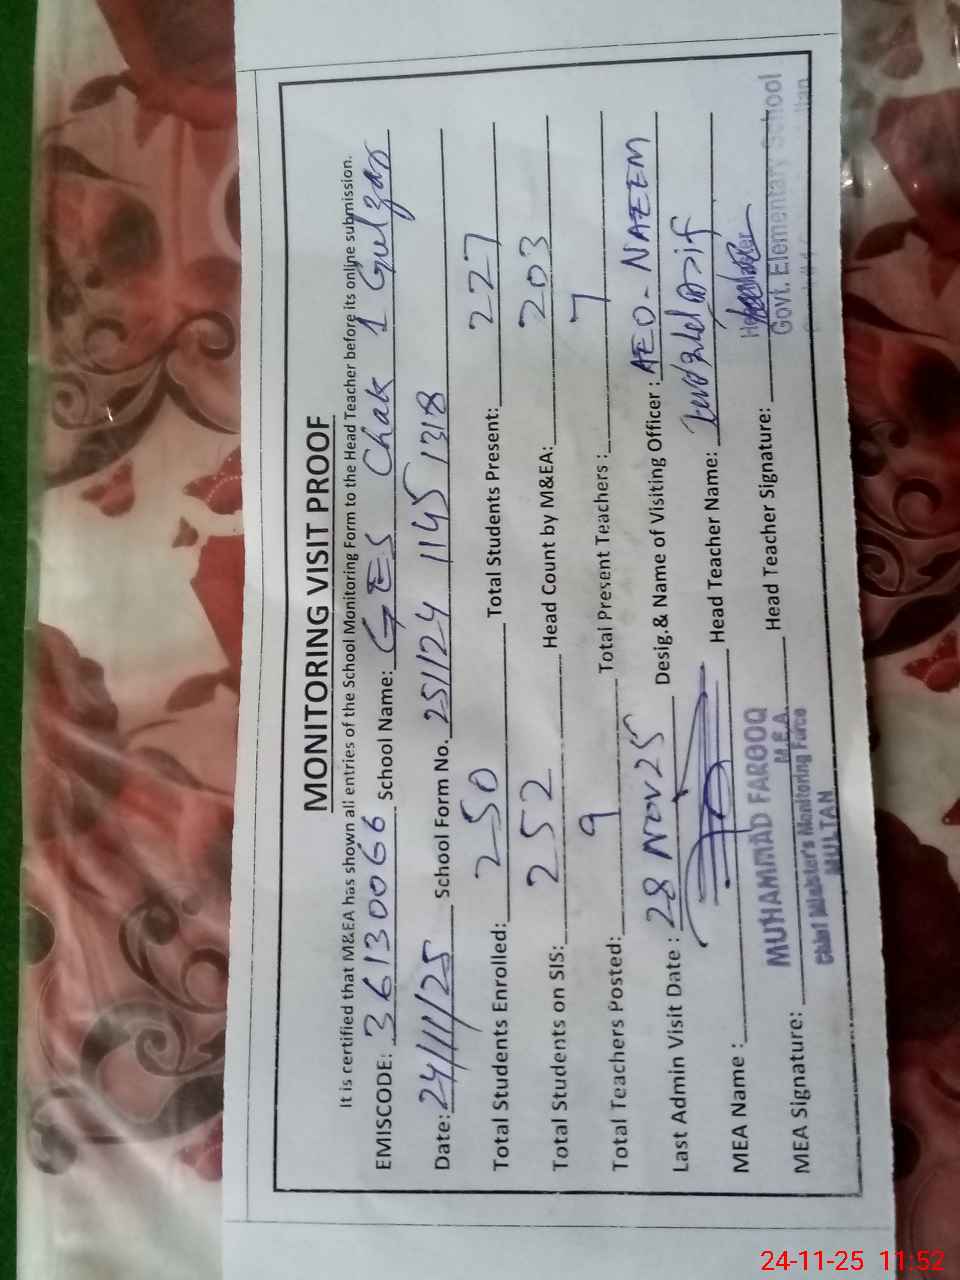 MONITORING VISIT PROOF
It is certified that M&EA has shown all entries of the School Monitoring Form to the Head Teacher before its online submission.
EMISCODE: 36130066 School Name: GES Chak 1 Gulzar
Date: 24/11/25 School Form No. 251124 1145 1318
Total Students Enrolled: 250 Total Students Present: 227
Total Students on SIS: 252 Head Count by M&EA: 203
Total Teachers Posted: 9 Total Present Teachers : 7
Last Admin Visit Date : 28 Nov 25 Desig.& Name of Visiting Officer : AEO- NAEEM
MEA Name : Head Teacher Name:
MUHAMMAD FAROOQ
M.E.A.
MEA Signature: Head Teacher Signature:
Chief Minister's Monitoring Force
MULTAN
Govt. Elementary School
24-11-25 11:52